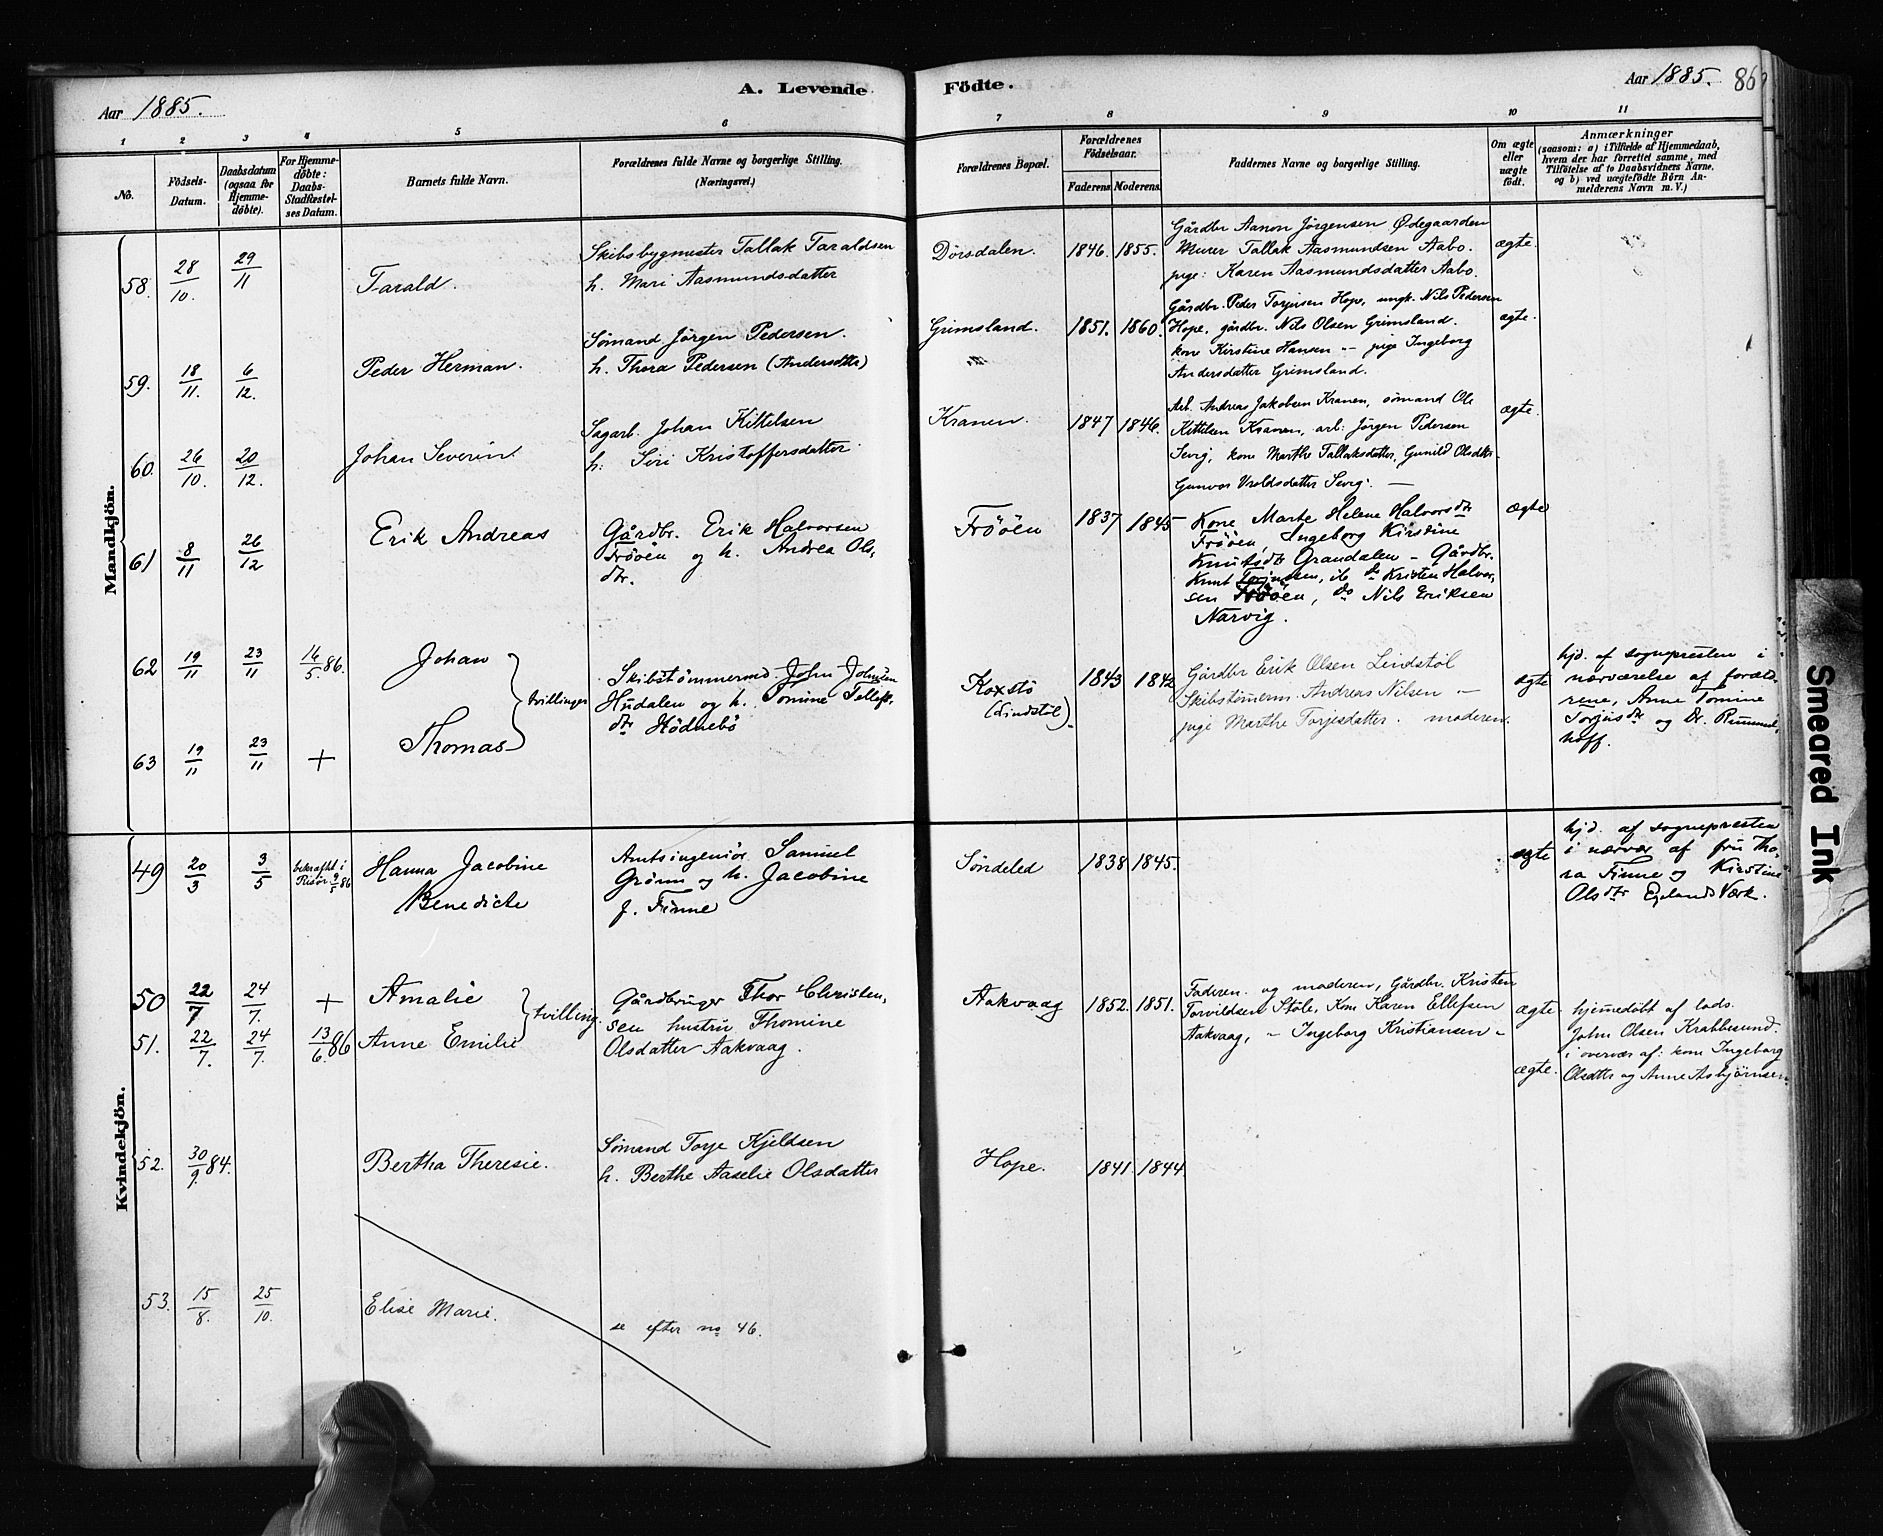 Aar 1885.
A. Levende Födte.
Aar 1885. 86
1 2 3 4 5 6 7 8 9 10 11
No.
Födsels-Datum.
Daabsdatum (ogsaa for Hjemme-döbte).
For Hjemme-döbte: Daabs-Stadfæstel-ses Datum.
Barnets fulde Navn.
Forældrenes fulde Navne og borgerlige Stilling.
(Næringsvei.)
Forældrenes Bopæl.
Forældrenes Födselsaar.
Faderens. Moderens.
Faddernes Navne og borgerlige Stilling.
Om ægte eller uægte födt.
Anmærkninger
(saasom: a) i Tilfælde af Hjemmedaab,
hvem der har forrettet samme, med
Tilföielse af to Daabsvidners Navne,
og b) ved uægtefödte Börn An-
melderens Navn m. V.)
Mandkjön.
58. 28/10. 29/11 Tarald.
Skibsbygmester Tallak Taraldsen
h. Mari Aasmundsdatter
Dorsdalen. 1846. 1855.
Gårdbr Aanon Jörgensen Ødegaarden
Murer Tallak Aasmundsen Aabo.
pige: Karen Aasmundsdatter Aabo.
ægte
59. 18/11. 6/12. Peder Herman.
Sømand Jörgen Pedersen.
h. Thora Pedersen (Andersdtr)
Grimsland. 1851. 1860.
Gårdbr. Peder Torjusen Hope, ungk. Nils Pedersen
Hope, gårdbr. Nils Olsen Grimsland.
kone Kirstine Hansen -"- pige Ingeborg
Andersdatter Grimsland.
ægte.
60. 26/10. 20/12. Johan Severin.
Sagarb. Johan Kittelsen
h. Siri Kristoffersdatter.
Kranen. 1847 1846.
Arb. Andreas Jakobsen Kranen, sömand Ole
Kittelsen Kranen, arb. Jörgen Pedersen
Sevrg, kone Marthe Tallaksdatter, Gunild Olsdtr
Gunvor Vraldsdatter Sevrg. —
ægte.
61 8/11 26/12 Erik Andreas
Gårdbr. Erik Halvorsen
Frööen og h. Andrea Ols-
dtr.
Frööen 1837 1845
Kone Marte Helene Halvorsdtr
Frööen, Ingeborg Kirstine
Knutsdtr Grandalen - Gårdbr.
Knut Torjussen, ib. do Kristen Halvor-
sen Frööen, do Nils Eriksen
Narvig.
ægte
62 19/11 23/11 16/5 86. Johan
63 19/11 23/11 + Thomas
tvillinger
Skibstømmermd. John Johnsen
Hudalen og h. Tomine Tellefs-
dtr Hödnebö
Koxstö
(Lindstöl).
1843 1842
Gårdbr Erik Olsen Lindstöl
Skibstömerm. Andreas Nilsen —
pige Marthe Torjesdatter. moderen.
ægte
hjd. af sognepresten i
nærværelse af foræld-
rene, Anne Tomine
Torjusdtr og Dr. Rummel-
hoff.
Kvindekjön.
49 20/3 3/5 bekræftet i
Risör 9/5 86
Hanna Jacobine
Benedicte
Amtsingeniör Samuel
Grönn og h. Jacobine
f. Finne
Söndeled 1838 1845.
ægte
hjd. af sognepresten
i nærvær af fru Tho-
ra Finne og Kirstine
Olsdtr Egelands Værk.
50 22/7 24/7. + Amalie
51. 22/7. 24/7. 13/6. 86 Anne Emilie
tvilling.
Gårdbruger Thor Christen-
sen hustru Thomine
Olsdatter Aakvaag.
Aakvaag 1852. 1851.
Faderen og moderen, Gårdbr. Kristen
Torvildsen Støle, Kone Karen Ellefsen
Aakvaag, - Ingeborg Kristiansen -
ægte.
ægte.
hjemmedöbt af lods.
John Olsen Krabbesund.
i overvær af: kone Ingeborg
Olsdtr og Anne Asbjørnsen
52. 30/9. 84. Bertha Theresie.
Sømand Torje Kjeldsen
h. Berthe Aaselie Olsdatter
Hope. 1841. 1844.
53. 15/8. 25/10. Elise Marie.
se efter no 46.
Smeared Ink